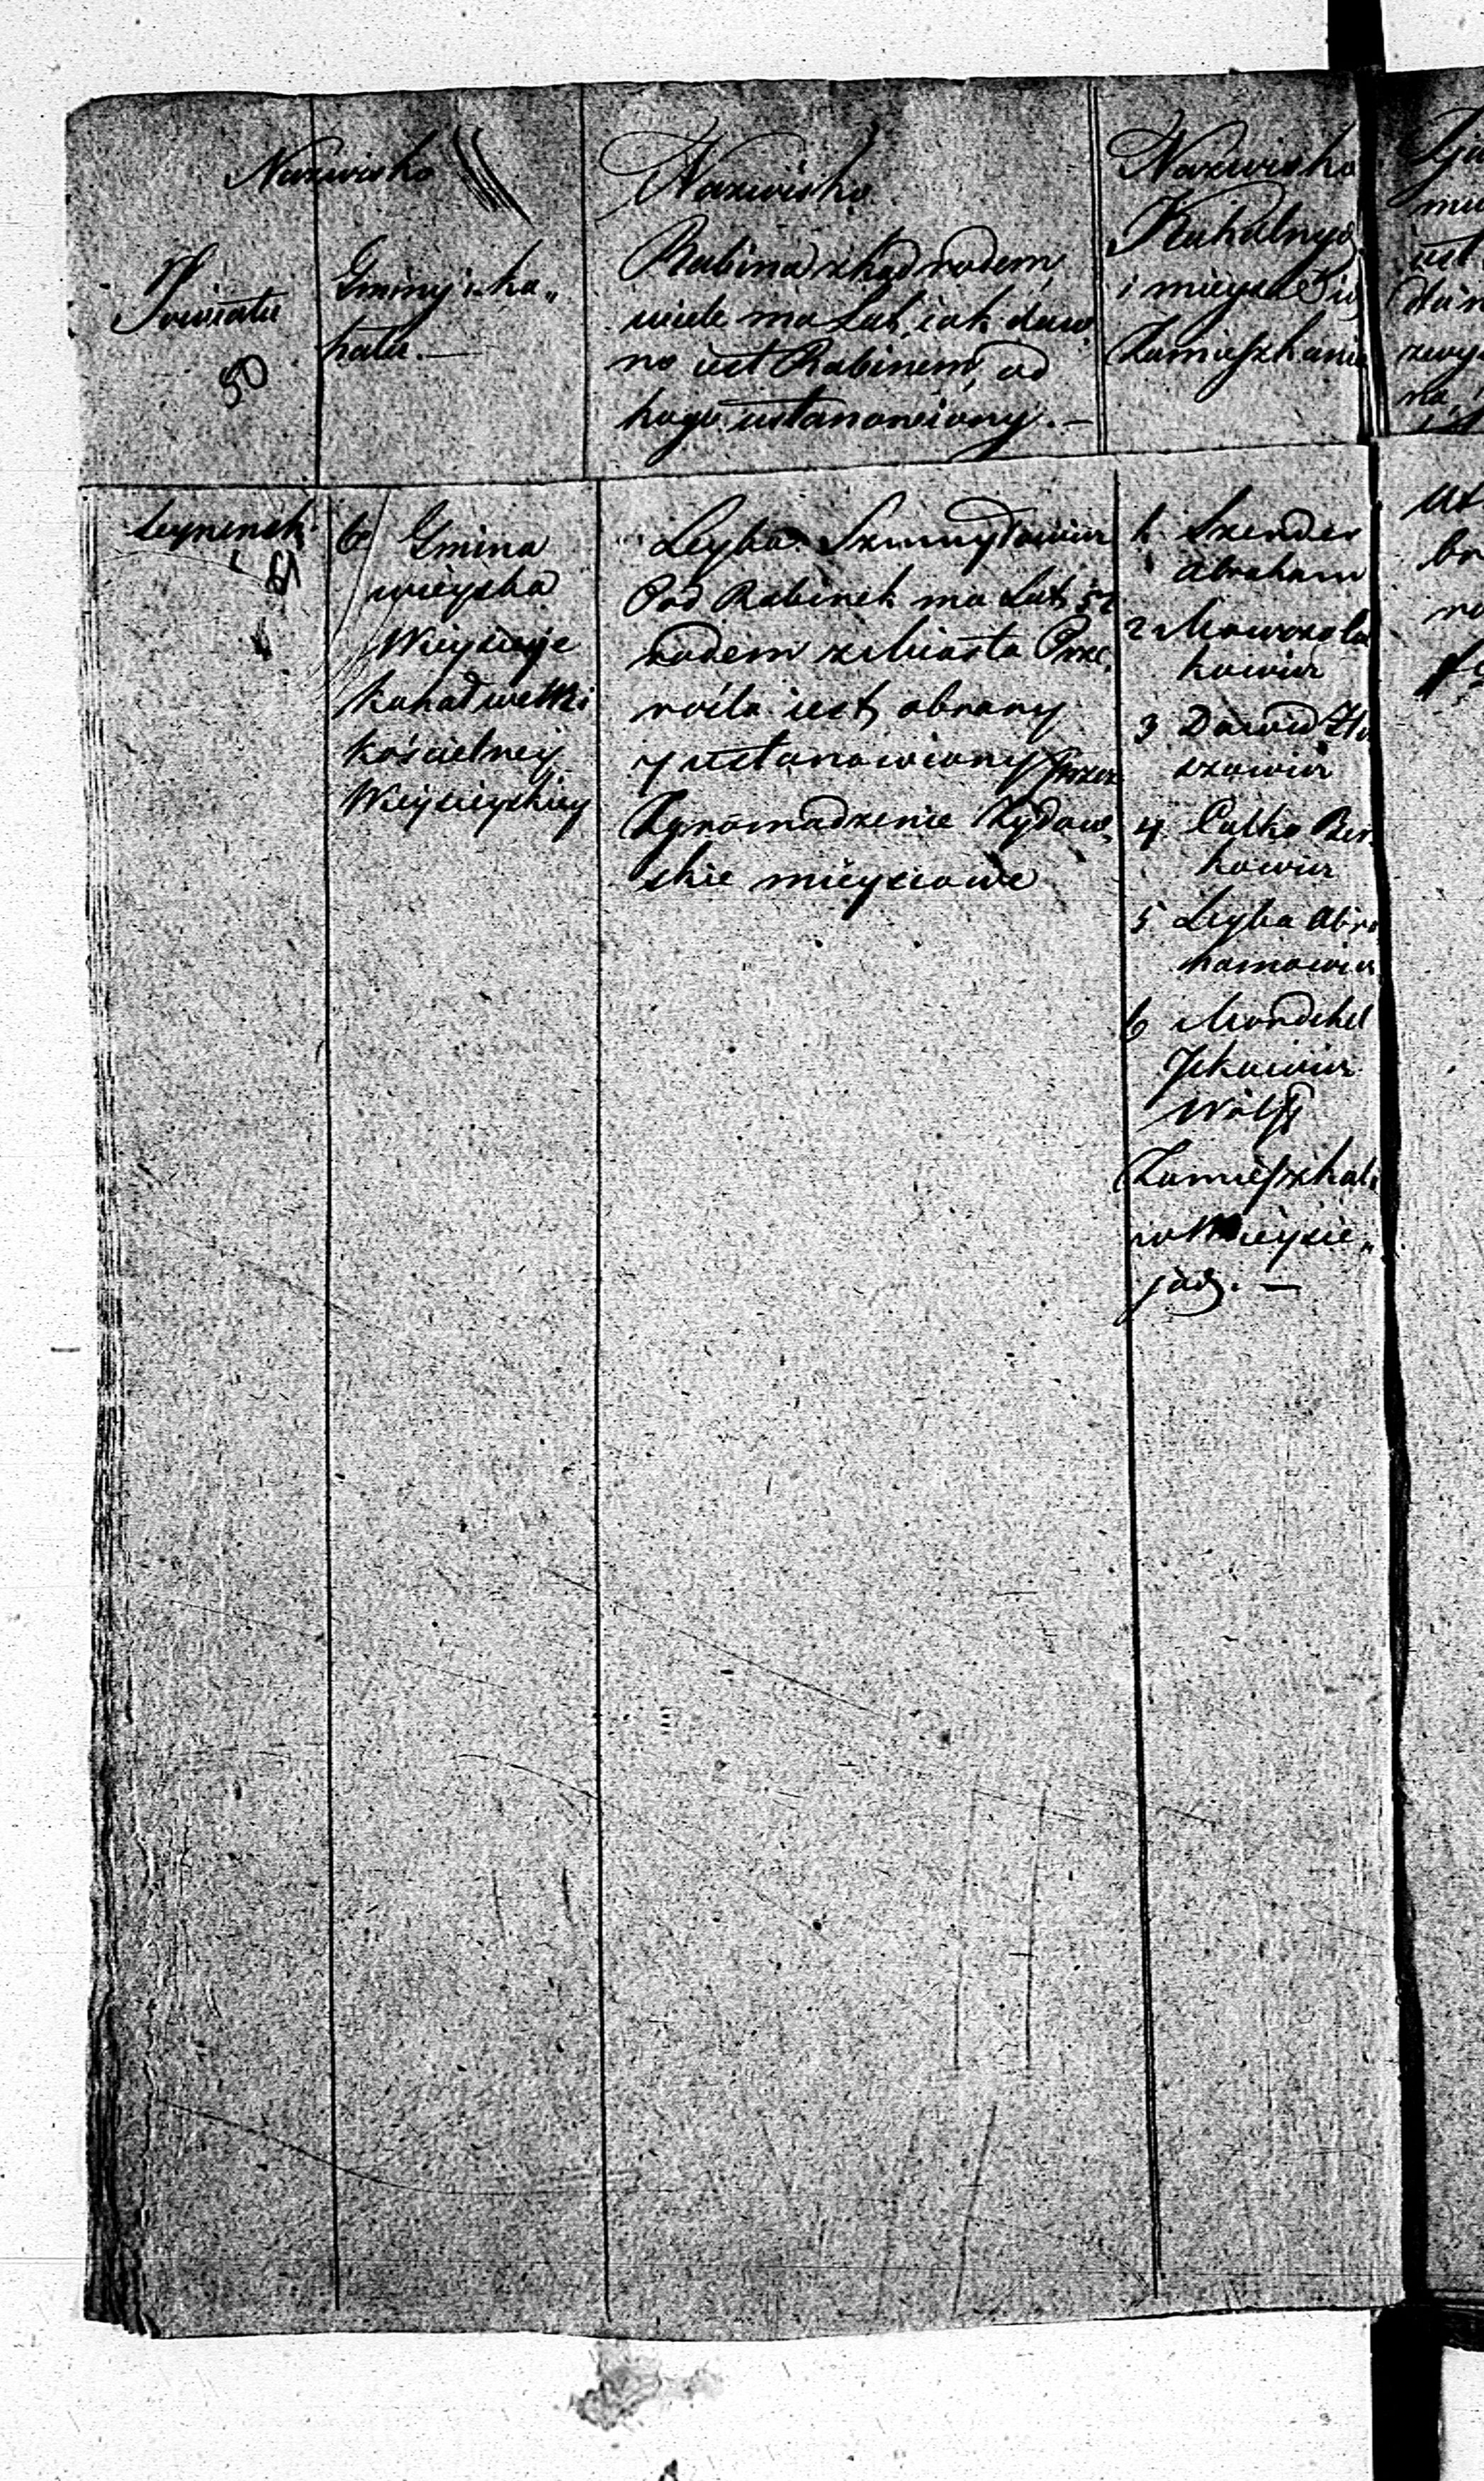 Nazwisko
Powiatu
50
Gminy i ka„
hału.—
Nazwisko
Rabina zkąd rodem,
wiele ma Lat, iak daw
no iest Rabinem, od
kogo ustanowiony.—
Nazwisko
Kahalnych
i mieysce Ich
Zamieszkania
Seynensk.
51
6 Gmina
wieyska
Wieysieje
Kahał wełki
Kościelney
Wieysieyskiey
Leyba Szmuyłowicz
Pod Rabinek ma Lat
rodem z Miasta Prze,
rośla iest obrany
y ustanowiony przez
Zgromadzenie Żydow,
skie mieyscowe
1. Szender
Abraham
2
kowicz
3 Dawid
szowicz
4. Calko Ber,
kowicz
5 Leyba Abra
hamowicz
6 Mordchel
Ickowicz
Wolff
Zamieszkali
w Wieysie„
jach.—